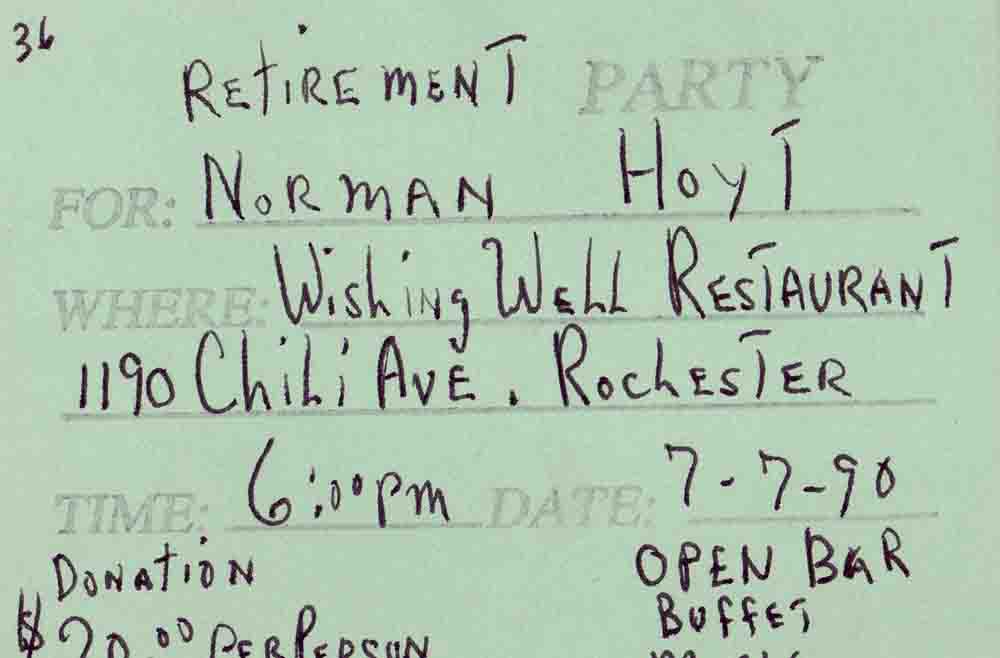 36
RETIREMENT PARTY
FOR: NORMAN HOYT
WHERE: Wishing WELL RESTAURANT
1190 Chili AVE. ROCHESTER
TIME: 6:00 pm DATE: 7-7-90
DONATION OPEN BAR
$20.00 PER PERSON BUFFET